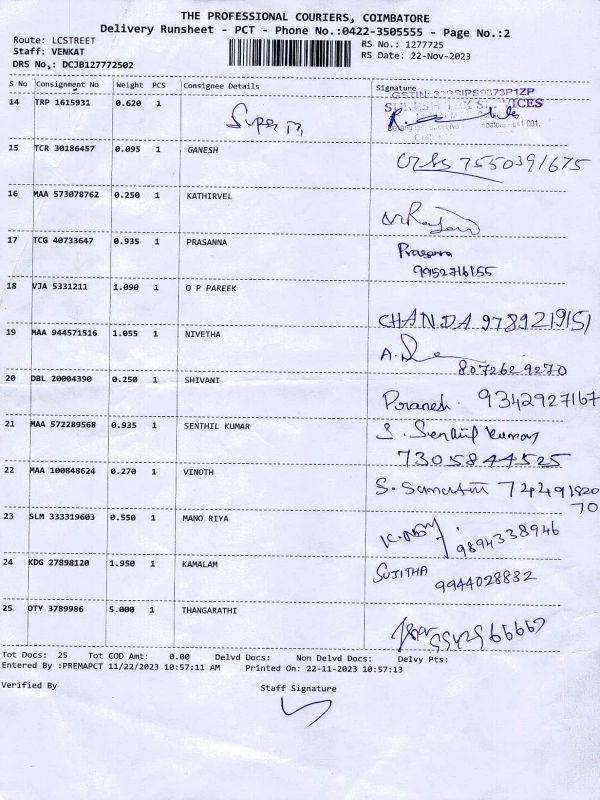 THE PROFESSIONAL COURIERS, COIMBATORE
Delivery Runsheet - PCT - Phone No.:0422-3505555 - Page No.:2
Route: LCSTREET
Staff: VENKAT
DRS No,: DCJB127772502
RS No.: 1277725
RS Date: 22-Nov-2023
S No Consignment No Weight PCS Consignee Details Signature
14 TRP 1615931 0.620 1
15 TCR 30186457 0.095 1 GANESH 7550391675
16 MAA 573078762 0.250 1 KATHIRVEL
17 TCG 40733647 0.935 1 PRASANNA Prasanna
9952716155
18 VJA 5331211 1.090 1 O P PAREEK
CHANDA 9789219151
19 MAA 944571516 1.055 1 NIVETHA
8072629270
20 DBL 20004390 0.250 1 SHIVANI Pranesh. 9342927167
21 MAA 572289568 0.935 1 SENTHIL KUMAR S. Senthil Kumar
7305844525
22 MAA 100848624 0.270 1 VINOTH 74491820
70
23 SLM 333319603 0.550 1 MANO RIYA
9894338946
24 KDG 27898120 1.950 1 KAMALAM SUJITHA
9944028832
25 OTY 3789986 5.000 1 THANGARATHI
Tot Docs: 25 Tot COD Amt: 0.00 Delvd Docs: Non Delvd Docs: Delvy Pts:
Entered By :PREMAPCT 11/22/2023 10:57:11 AM Printed On: 22-11-2023 10:57:13
Verified By
Staff Signature